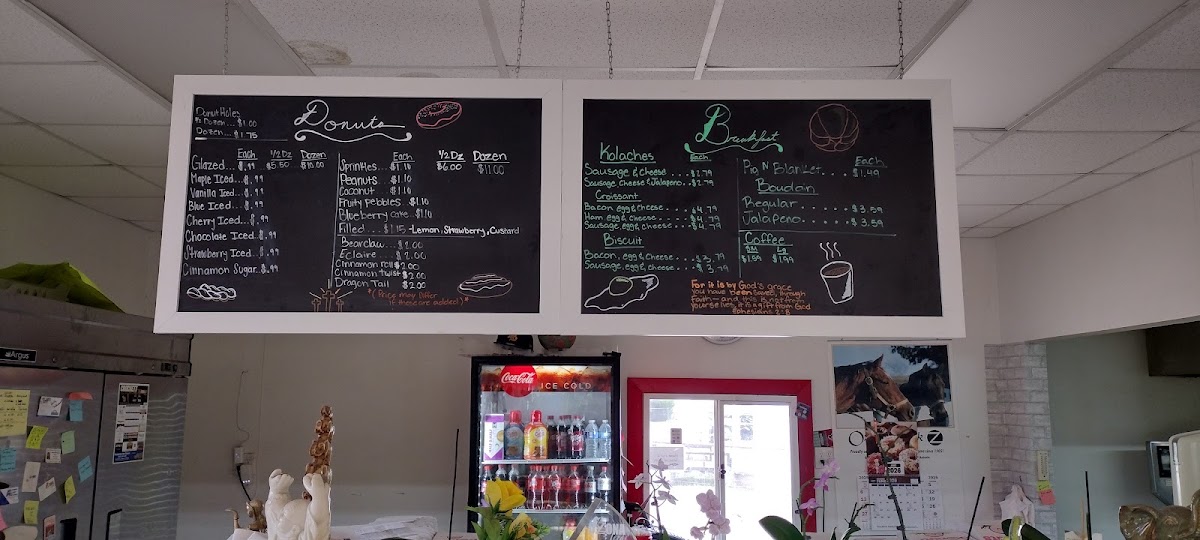 Donut Holes
1/2 Dozen....$1.00
Dozen....$1.75
Donuts
Each 1/2 Dz Dozen
Glazed...$.99 $5.50 $10.00
Maple Iced...$.99
Vanilla Iced...$.99
Blue Iced....$.99
Cherry Iced...$.99
Chocolate Iced..$.99
Strawberry Iced...$.99
Cinnamon Sugar..$.99
Each 1/2 Dz Dozen
Sprinkles....$1.10 $6.00 $11.00
Peanuts....$1.10
Coconut....$1.10
Fruity Pebbles..$1.10
Blueberry cake..$1.10
Filled....$1.15 - Lemon, Strawberry, Custard
Bearclaw...$2.00
Eclaire....$2.00
Cinnamon roll $2.00
Cinnamon twist $2.00
Dragon Tail $2.00
*(Price may differ
if these are added)*
Breakfast
Kolaches Each
Sausage & Cheese....$2.79
Sausage, Cheese & Jalapeno..$2.79
Croissant
Bacon, egg & cheese....$4.79
Ham egg & cheese.....$4.79
Sausage, egg & cheese...$4.79
Biscuit
Bacon, egg & cheese....$3.79
Sausage, egg & cheese...$3.79
Each
Pig N Blanket....$1.49
Boudain
Regular......$3.59
Jalapeno.....$3.59
Coffee
SM LG
$1.59 $1.99
For it is by God's grace
you have been saved, through
faith - and this is not from
yourselves, it is a gift from God
Ephesians 2:8
Argus
Coca-Cola
ICE COLD
Z
2026